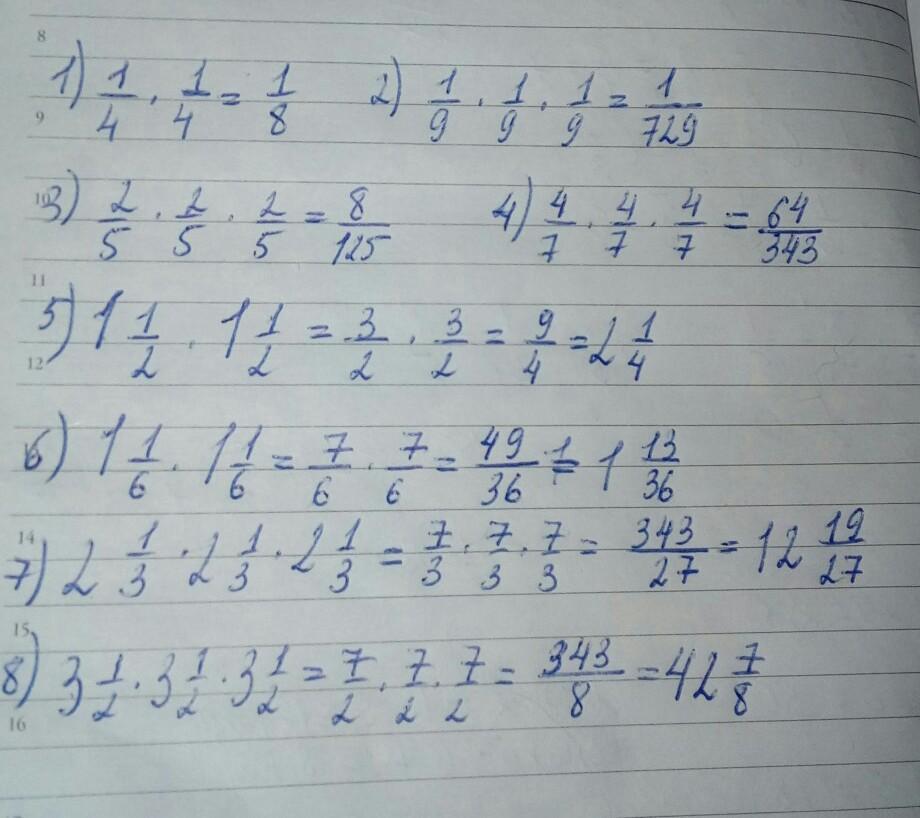 8
1) 1/4 · 1/4 = 1/8 2) 1/9 · 1/9 · 1/9 = 1/729
9
10
3) 2/5 · 2/5 · 2/5 = 8/125 4) 4/7 · 4/7 · 4/7 = 64/343
11
5) 1 1/2 · 1 1/2 = 3/2 · 3/2 = 9/4 = 2 1/4
12
6) 1 1/6 · 1 1/6 = 7/6 · 7/6 = 49/36 = 1 13/36
14
7) 2 1/3 · 2 1/3 · 2 1/3 = 7/3 · 7/3 · 7/3 = 343/27 = 12 19/27
15
8) 3 1/2 · 3 1/2 · 3 1/2 = 7/2 · 7/2 · 7/2 = 343/8 = 42 7/8
16